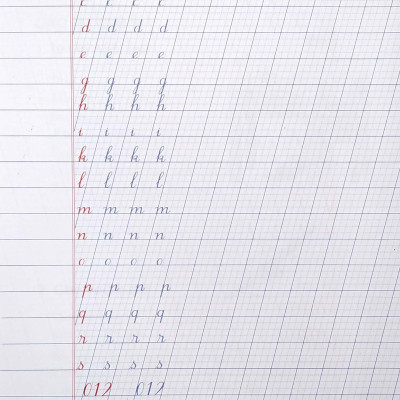 d d d d
e e e e
g g g g
h h h h
i i i i
k k k k
l l l l
m m m m
n n n n
o o o o
p p p p
q q q q
r r r r
s s s s
012 012